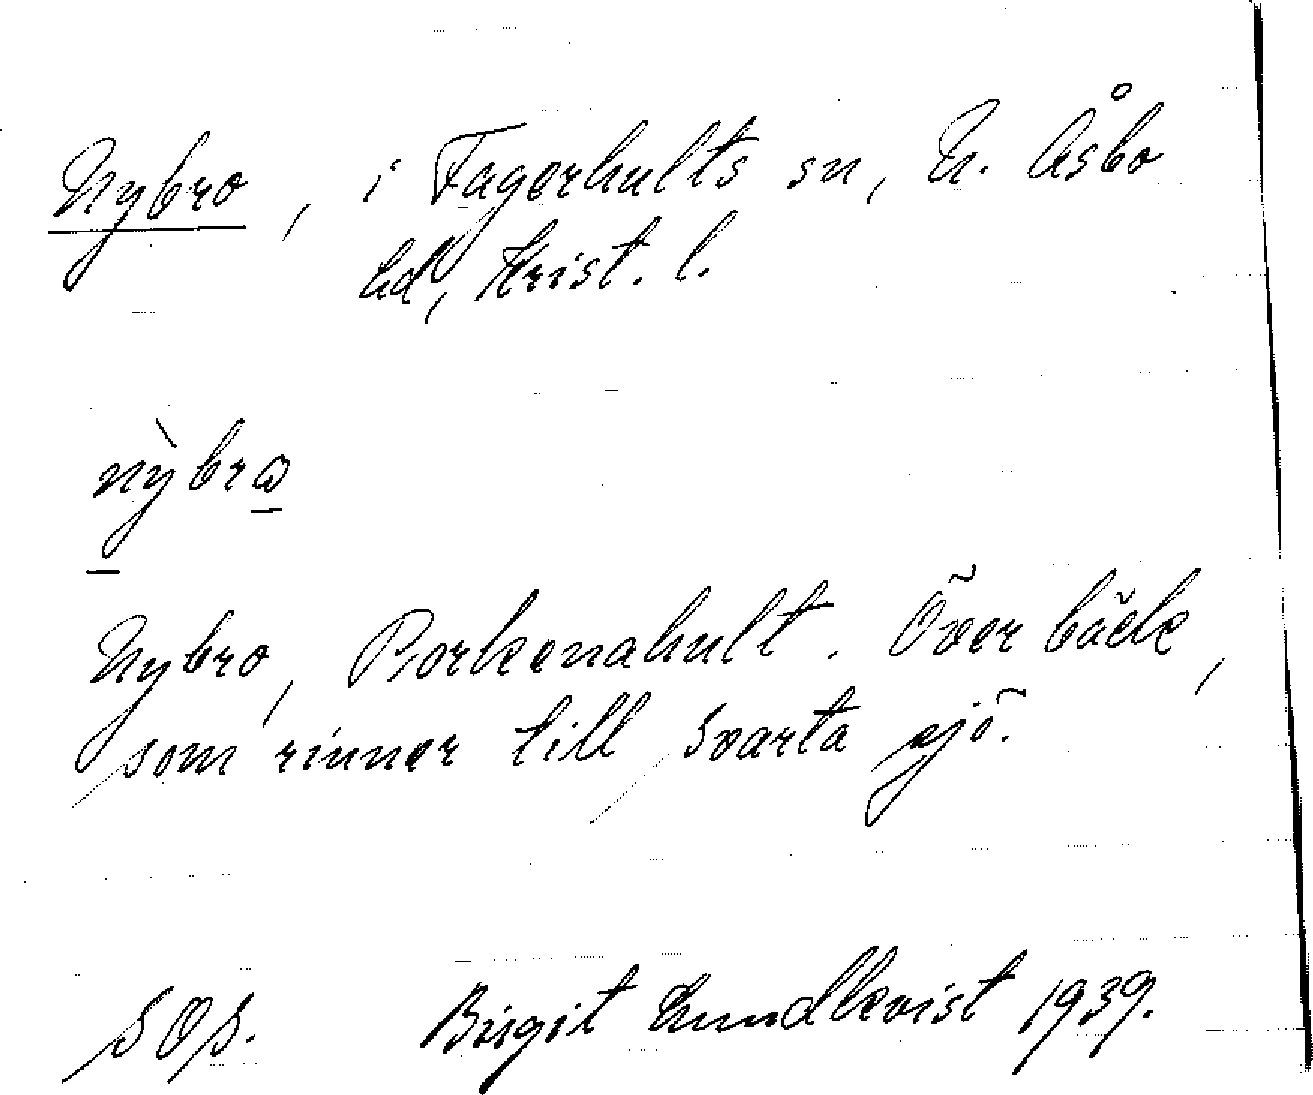 Nybro, i Fagerhults sn, N. Åsbo
hd, Krist. l.
nỳbrꙍ
Nybro, Porkenahult. Över bäck,
som rinner till Svarta sjö.
SOS. Birgit Lundkvist 1939.